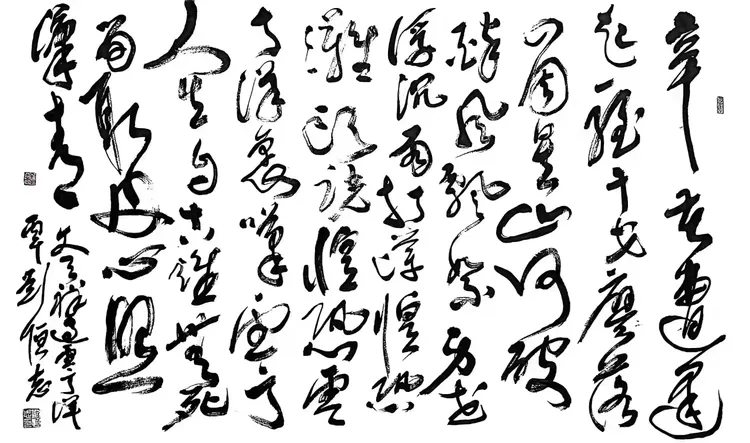 辛苦遭逢
起一經干戈寥落
四周星山河破
碎風飄絮身世
浮沉雨打萍惶恐
灘頭說惶恐零
丁洋裏嘆零丁
人生自古誰無死
留取丹心照
汗青
文天祥過零丁洋
劉恒志